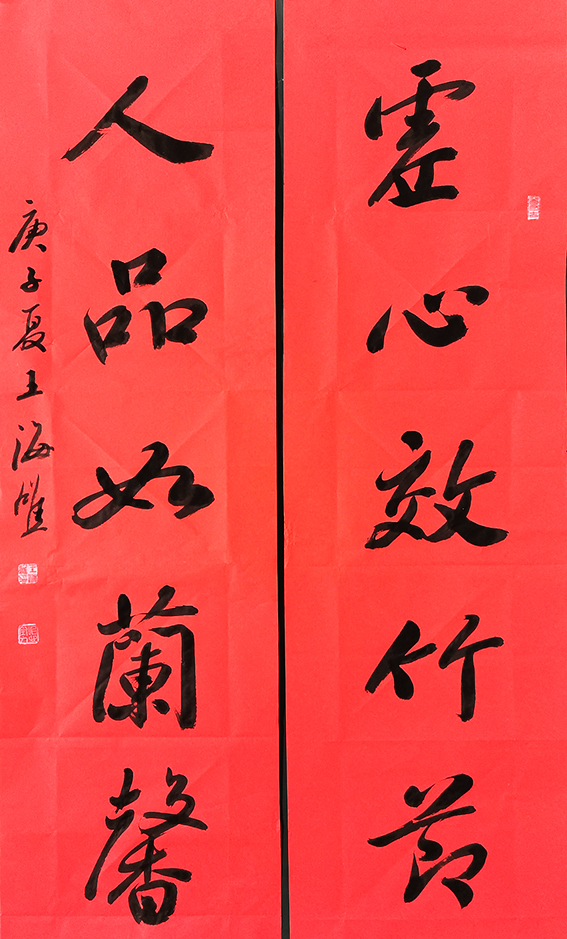 虚心效竹節
人品如蘭馨
庚子夏王海雄